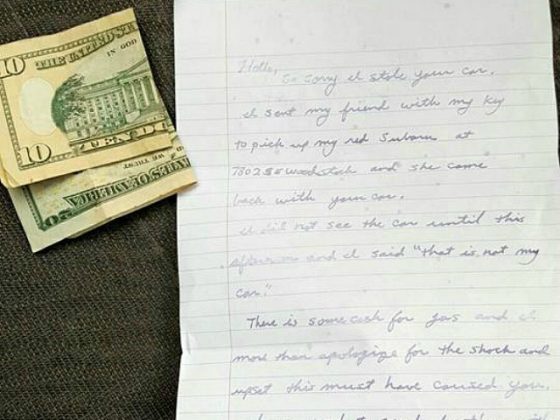 10
THE UNITED STATES
IN GOD
10
TEN DO
WE TRUST
STATES OF AMERICA
20
Hello,
So sorry I stole your car.
I sent my friend with my key
to pick up my red Subaru at
7802 SE Woodstock and she came
back with your car.
I did not see the car until this
afternoon and I said "that is not my
car."
There is some cash for gas and I
more than apologize for the shock and
upset this must have caused you.